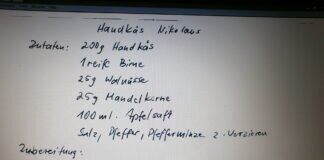 Handkäs Nikolaus
Zutaten: 200g Handkäs
1 reife Birne
25g Walnüsse
25g Mandelkerne
100 ml. Apfelsaft
Salz, Pfeffer, Pfefferminze z. Verzieren
Zubereitung: